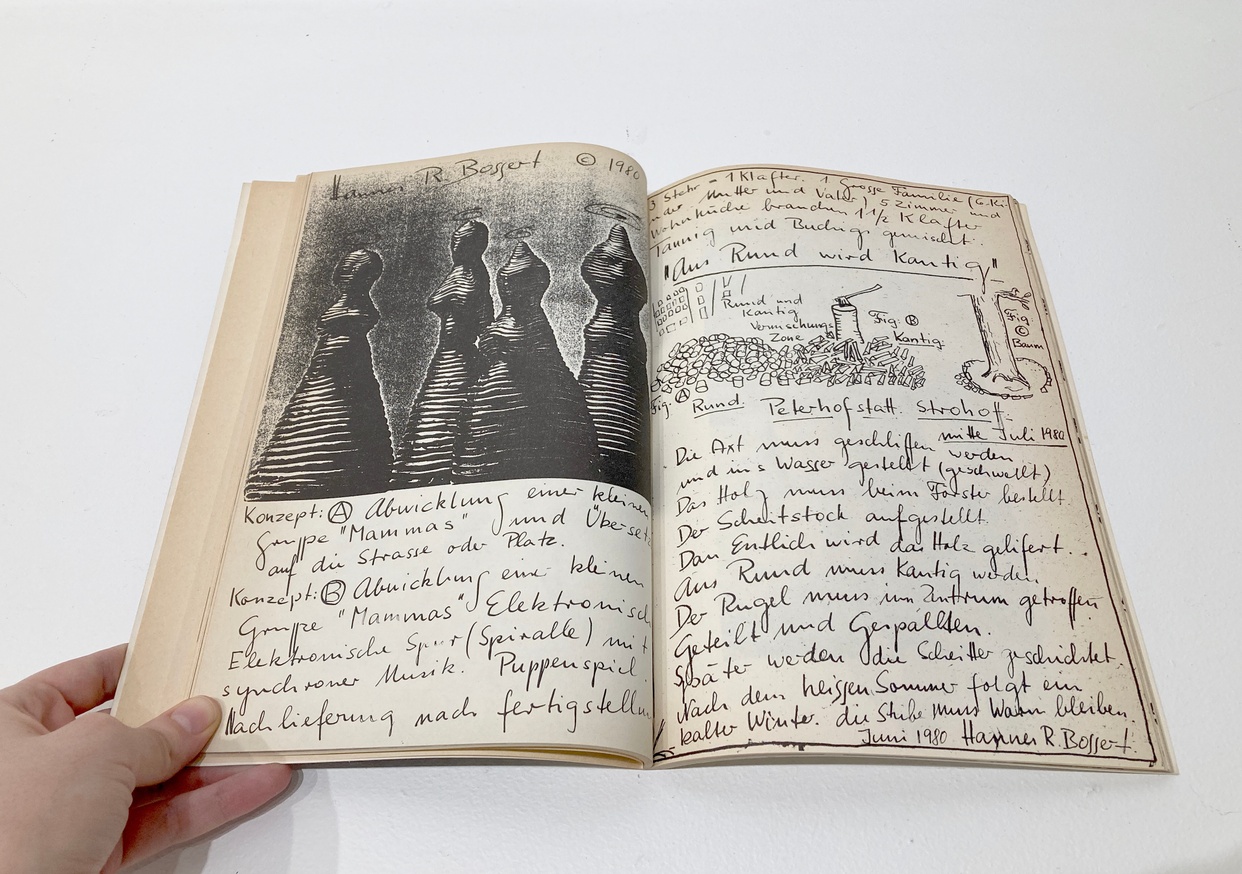 Hannes R. Bossert © 1980
Konzept: Ⓐ Abwicklung einer kleinen
Gruppe "Mammas" und Überset
auf die Strasse oder Platz.
Konzept: Ⓑ Abwicklung einer kleinen
Gruppe "Mammas" Elektronisch
Elektronische Spur (Spiralle) mit
synchroner Musik. Puppenspiel.
Nachlieferung nach fertigstellun
3 Stehr = 1 Klafter. 1 Grosse Familie (6. Ki
nder Mutter und Vater) 5 Zimmer und
Wohnküche brauchen 1 1/2 Klafter
Tannig und Buchig, gemischt.
"Aus Rund wird Kantig"
Rund und
Kantig
Vermischungs
Zone
Fig. Ⓑ
Kantig.
Fig.
Ⓒ
Baum
Fig. Ⓐ Rund. Peterhofstatt. Strohoff.
mitte Juli 1980
Die Axt muss geschliffen werden
und in's Wasser gestellt (geschwellt)
Das Holz muss beim Förster bestellt.
Der Scheitstock aufgestellt.
Dan Entlich wird das Holz gelifert...
Aus Rund muss Kantig werden.
Der Rugel muss im Zentrum getroffen
Geteilt und Gespällten.
Später werden die Scheitter geschichtet.
Nach dem heissen Sommer folgt ein
kalter Winter. die Stube muss Warm bleiben.
Juni 1980 Hannes R. Bossert.